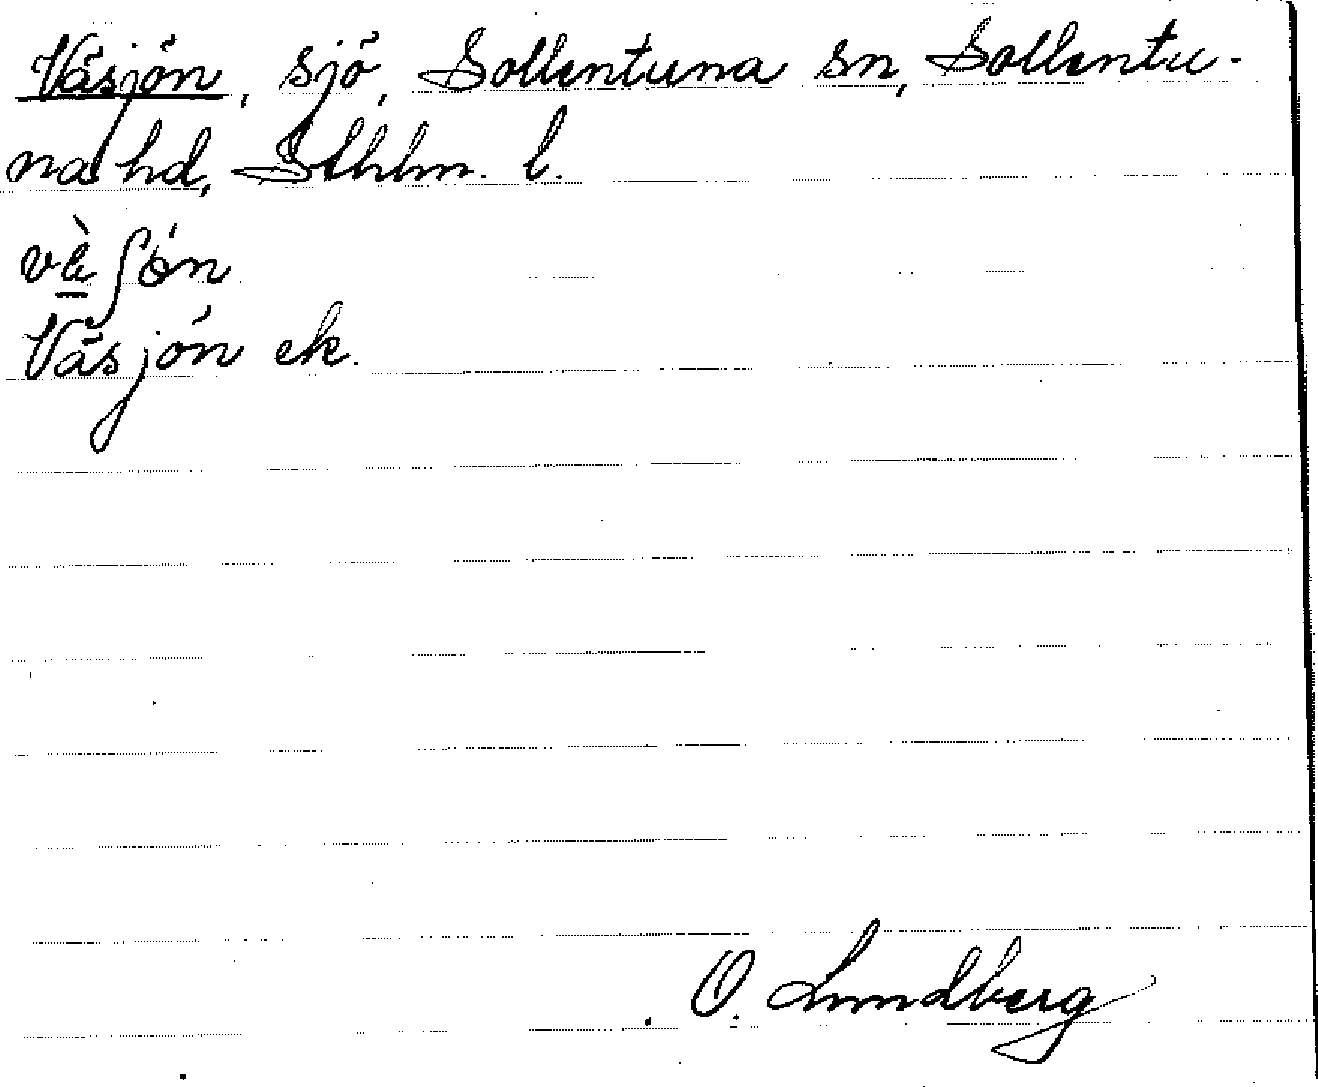 Väsjön, sjö, Sollentuna sn, Sollentu-
na hd, Sthlm. l.
vὲʃön
Väsjön ek.
O. Lundberg